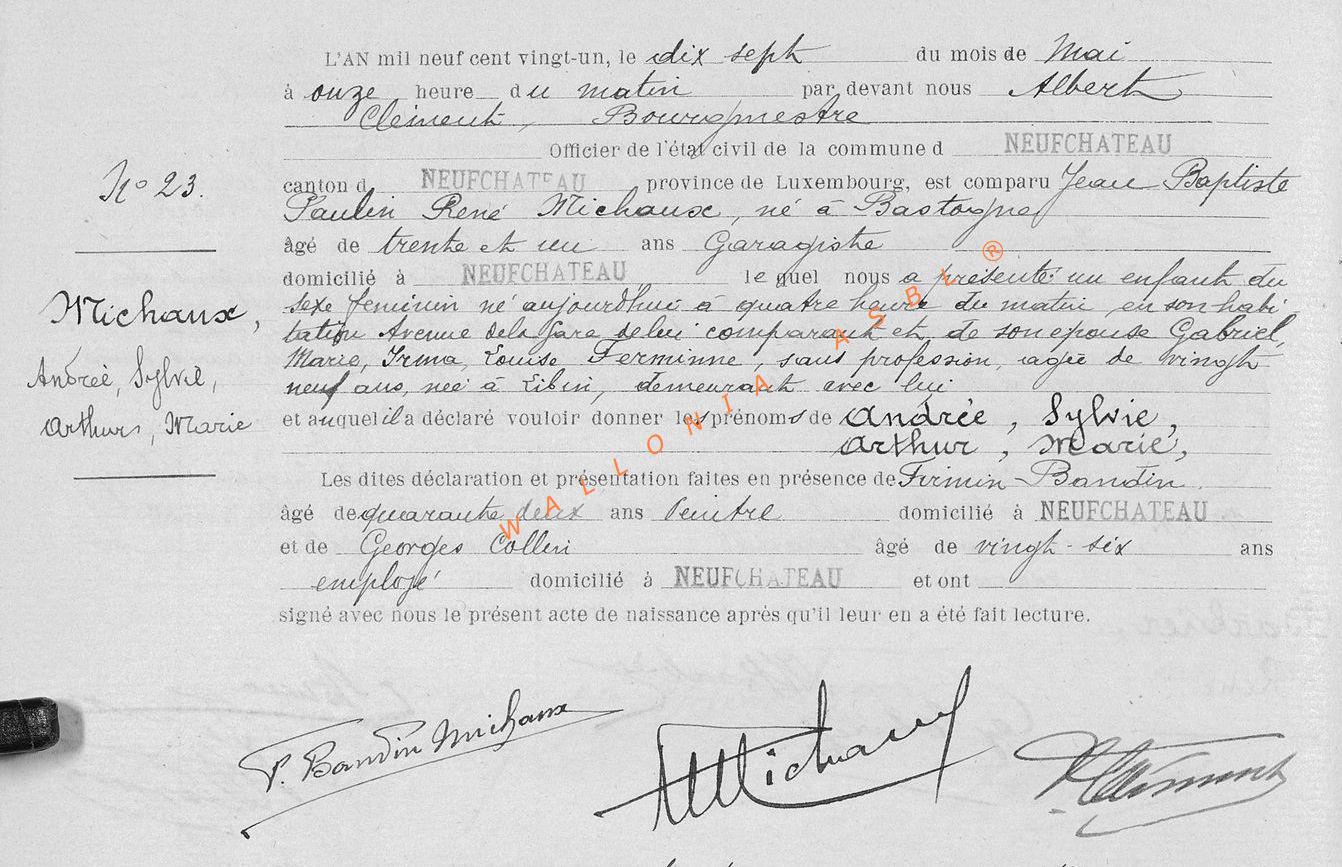 L'AN mil neuf cent vingt-un, le dix sept du mois de Mai
à onze heure du matin par devant nous Albert
Clément, Bourgmestre
Officier de l'état civil de la commune d NEUFCHATEAU
N° 23.
canton d NEUFCHATEAU province de Luxembourg, est comparu Jean Baptiste
Paulin René Michaux, né à Bastogne
âgé de trente et un ans Garagiste
domicilié à NEUFCHATEAU lequel nous a présenté un enfant du
sexe feminin né aujourdhui à quatre heure du matin en son habi
tation Avenue dela Gare delui comparant et de son epouse Gabriel,
Marie, Irma, Louise Ferminne, sans profession, agée de vingh
neuf ans, née à Libin, demeurant avec lui
et auquel il a déclaré vouloir donner les prénoms de Andrée, Sylvie,
Arthur, Marie,
Michaux,
Andrée, Sylvie,
Arthur, Marie
Les dites déclaration et présentation faites en présence de Firmin Bandin
âgé de quarante deux ans Peintre domicilié à NEUFCHATEAU
et de Georges Collin âgé de vingh-six ans
employé domicilié à NEUFCHATEAU et ont
signé avec nous le présent acte de naissance après qu'il leur en a été fait lecture.
F. Bandin Michaux
Michaux
Clément
WALLONIA ASBL ®